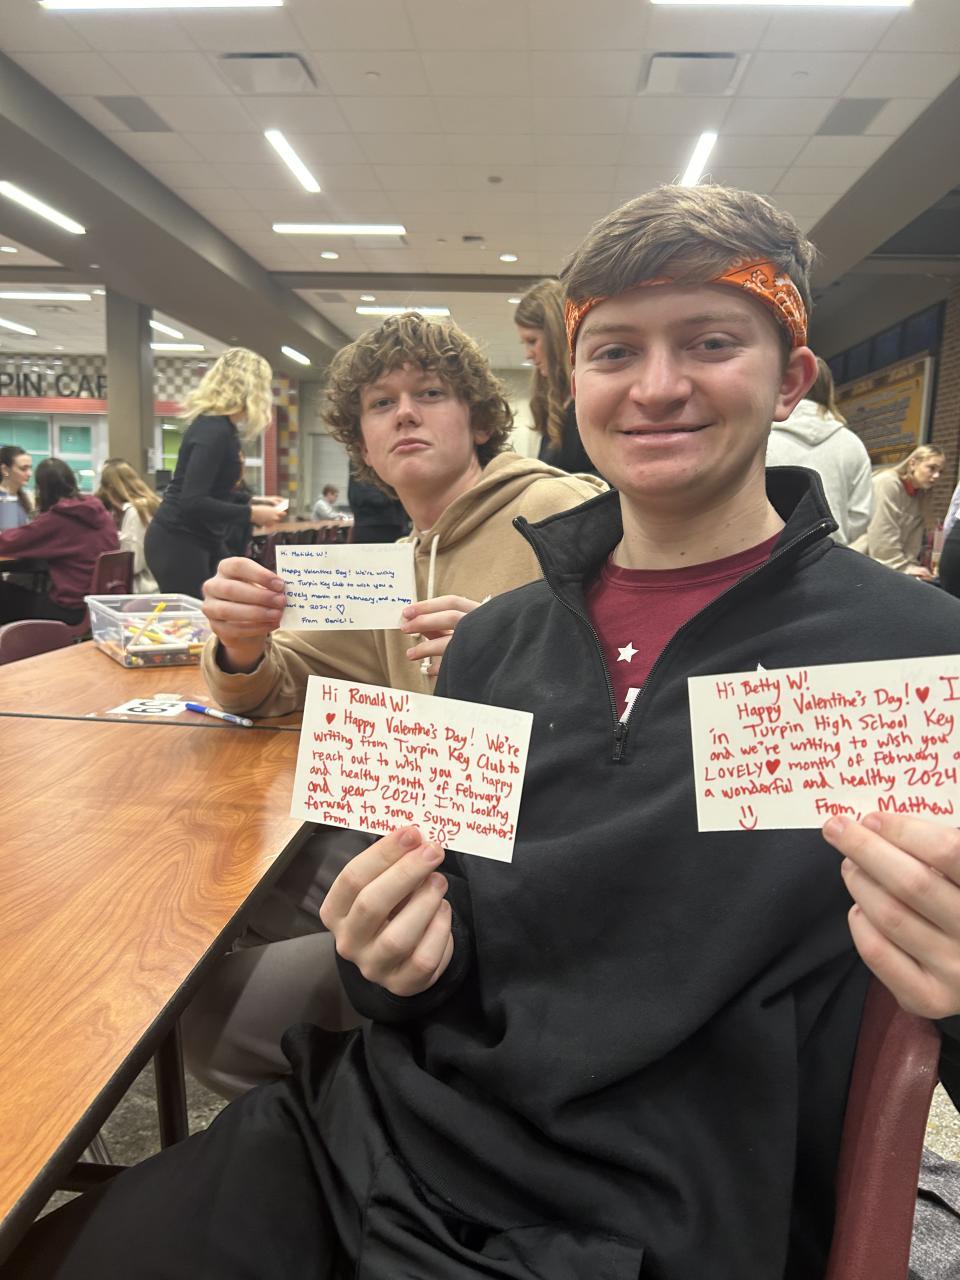 PIN CAF
Hi Matilde W!
Happy Valentines Day! We're writing
from Turpin Key Club to wish you a
lovely month of February, and a happy
to 2024! ♡
From Daniel L
Hi Ronald W!
♥ Happy Valentine's Day! We're
writing from Turpin Key Club to
reach out to wish you a happy
and healthy month of February
and year 2024! I'm looking
forward to some sunny weather!
From, Matthew
Hi Betty W!
Happy Valentine's Day! ♥ I
in Turpin High School Key
and we're writing to wish you
LOVELY♥ month of February a
a wonderful and healthy 2024
From, Matthew